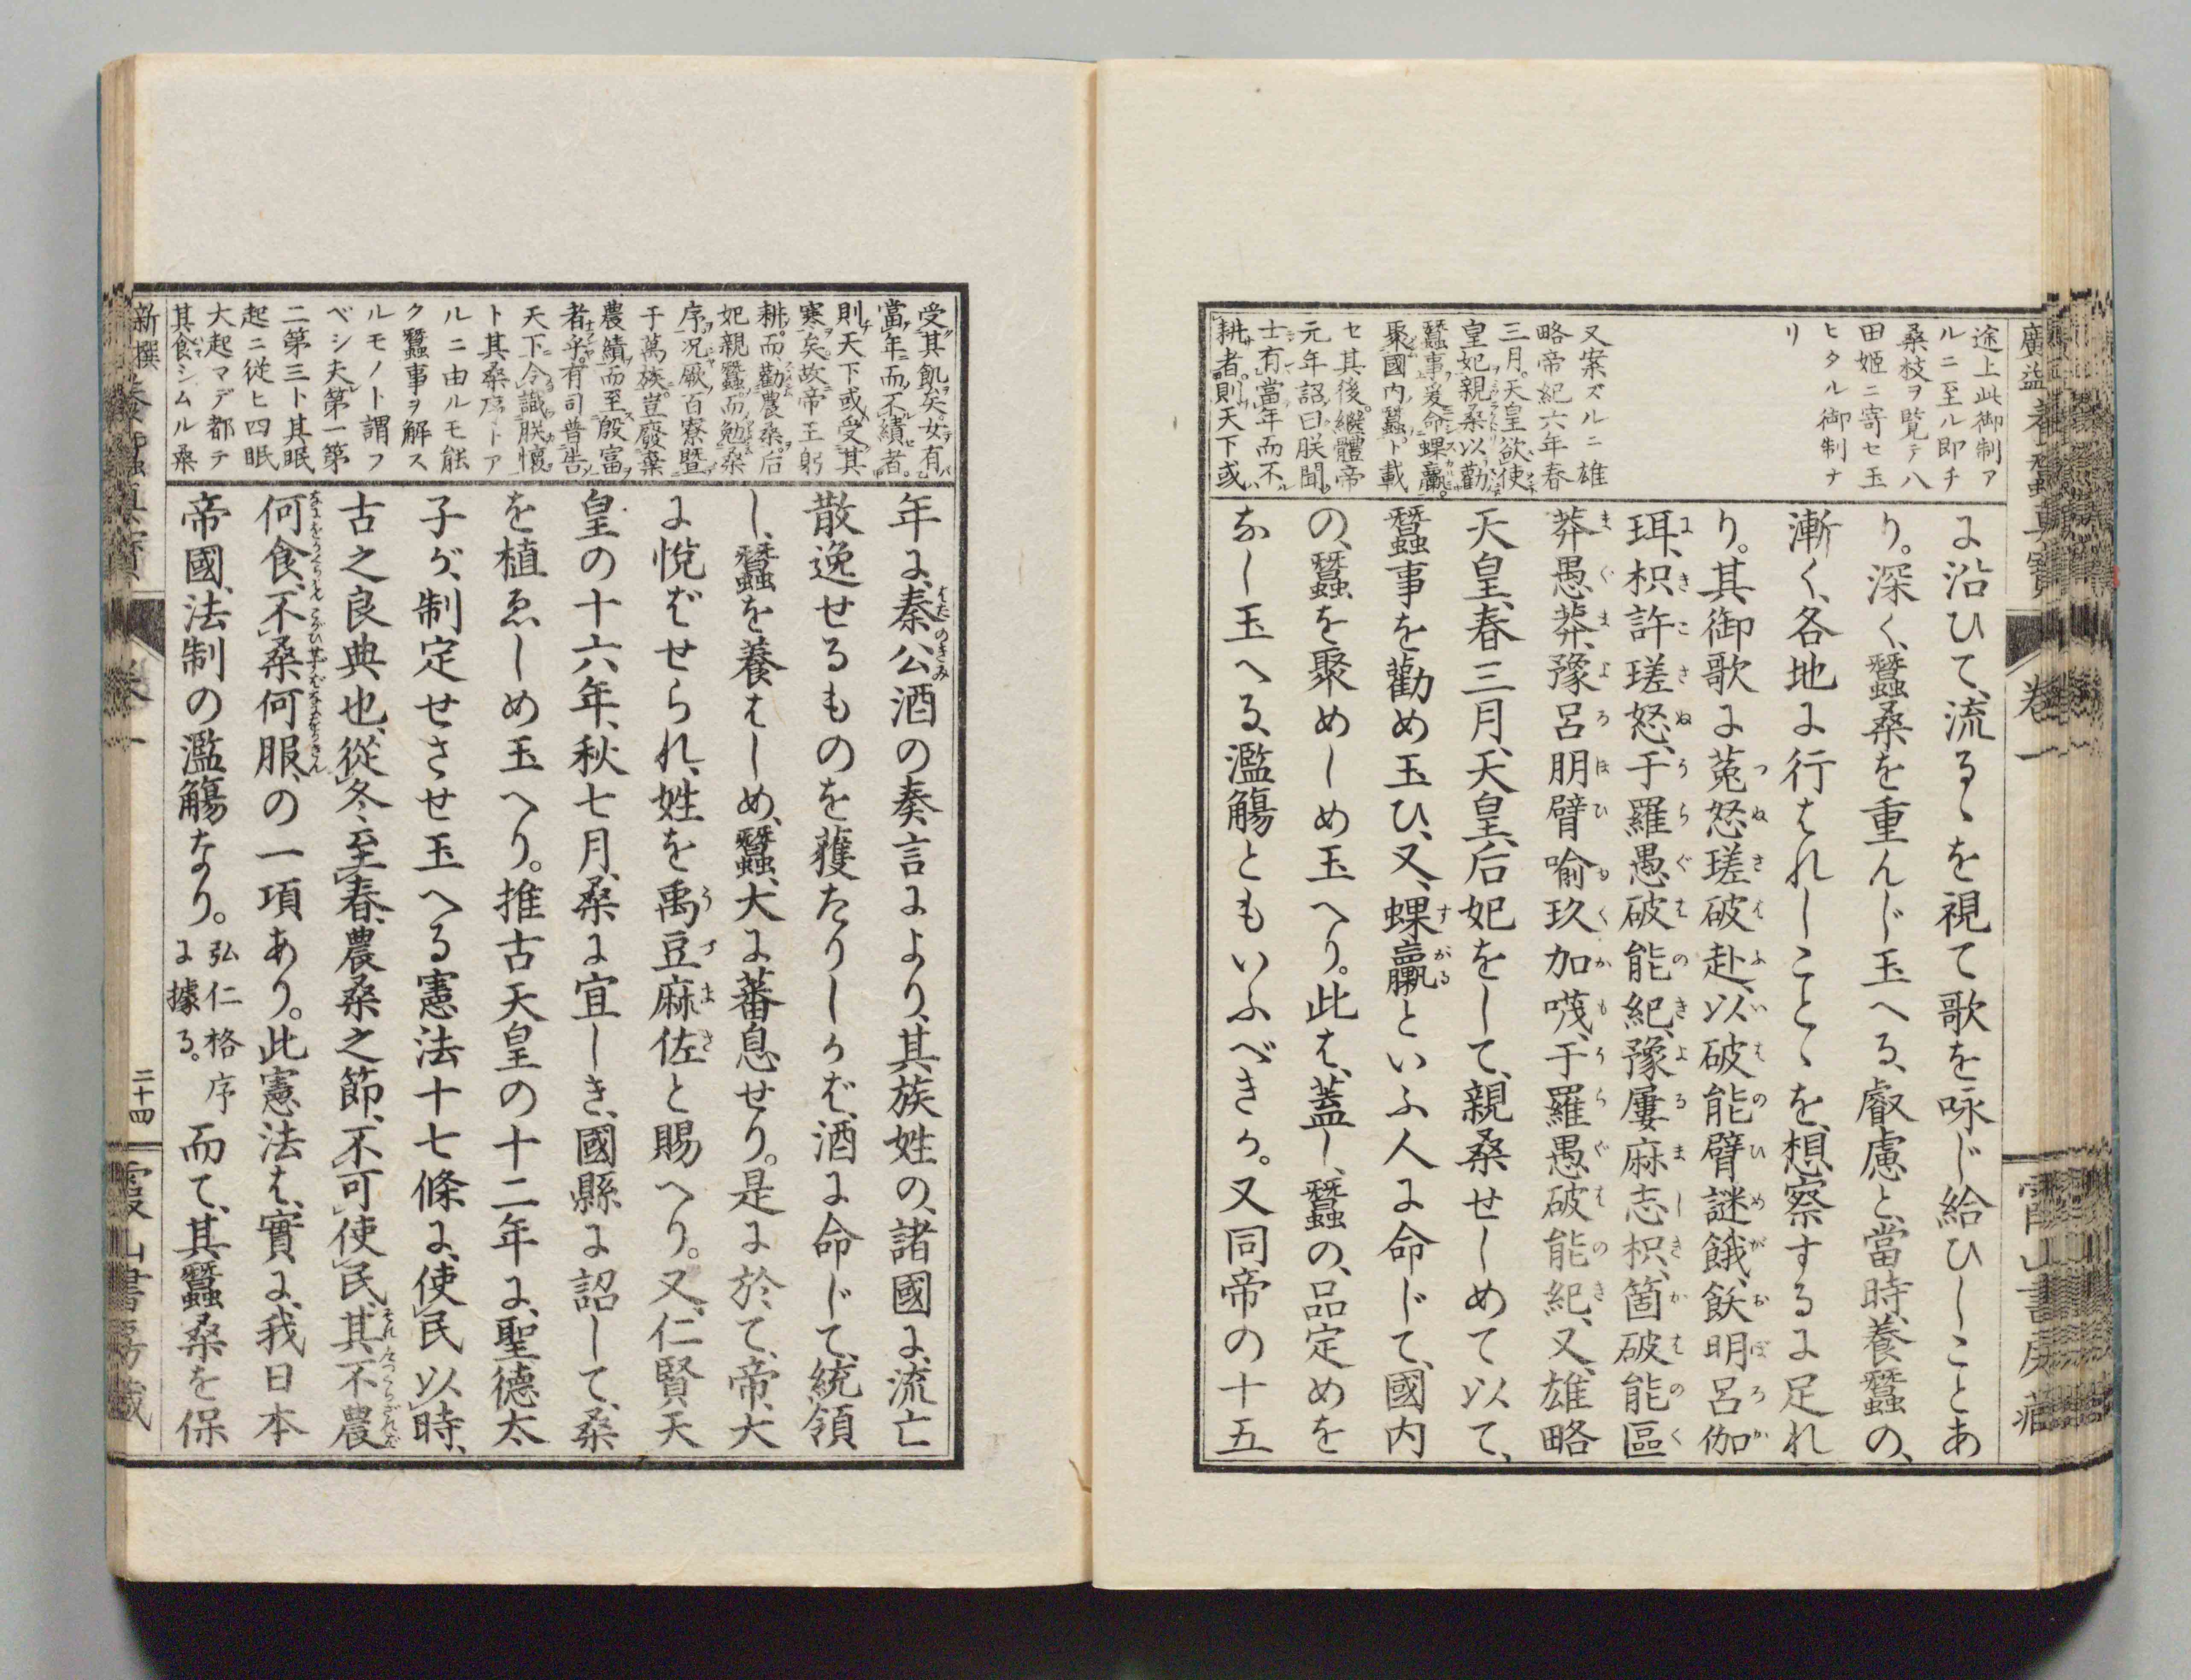 途上此御制ア
ルニ至ル即チ
桑枝ヲ覧テ八
田姫ニ寄セ玉
ヒタル御制ナ
リ
又案ズルニ雄
略帝紀六年春
三月。天皇欲使
皇妃親桑以勸
蠶事爰命蜾蠃。
聚國内蠶ト載
セ其後。繼體帝
元年詔曰朕聞。
士有當年而不
耕者。則天下或
に沿ひて、流るゝを視て歌を咏じ給ひしことあ
り。深く、蠶桑を重んじ玉へる、叡慮と、當時、養蠶の、
漸く、各地に行はれしことゝを、想察するに足れ
り。其御歌に菟怒瑳破赴、以破能臂謎餓、飫朋呂伽
珥、枳許瑳怒、于羅愚破能紀、豫屢麻志枳、箇破能區
莽愚莽、豫呂朋臂喩玖加哦、于羅愚破能紀、又、雄略
天皇、春三月、天皇、后妃をして、親桑せしめて以て、
蠶事を勸め玉ひ、又、蜾蠃といふ人に命じて、國内
の、蠶を聚めしめ玉へり。此は、蓋し、蠶の、品定めを
なし玉へる、濫觴ともいふべきか。又同帝の十五
卷一
受其飢矣。女有
當年而不績者。
則天下或受其
寒矣。故帝王躬
耕而勸農桑。后
妃親蠶。而勉桑
序。况厥百寮曁
于萬族。豈廢棄
農績而至殷富
者乎。有司普告
天下令識朕懷
ト其桑序トア
ルニ由ルモ能
ク蠶事ヲ解ス
ルモノト謂フ
ベシ夫第一第
二第三ト其眠
起ニ從ヒ四眠
大起マデ都テ
其食シムル桑
年に、秦公酒の奏言により、其族姓の、諸國に、流亡
散逸せるものを獲たりしかば、酒に命じて、統領
し、蠶を養はしめ、蠶、大に蕃息せり。是に於て、帝、大
に悅ばせられ、姓を禹豆麻佐と賜へり。又、仁賢天
皇の十六年、秋七月、桑に宜しき、國縣に詔して、桑
を植ゑしめ玉へり。推古天皇の十二年に、聖德太
子が、制定せさせ玉へる憲法十七條に、使民以時、
古之良典也、從冬至春、農桑之節、不可使民、其不農
何食、不桑何服、の一項あり。此憲法は、實に、我日本
帝國、法制の濫觴なり。弘仁格序に據る。而て、其蠶桑を保
新撰
二十四